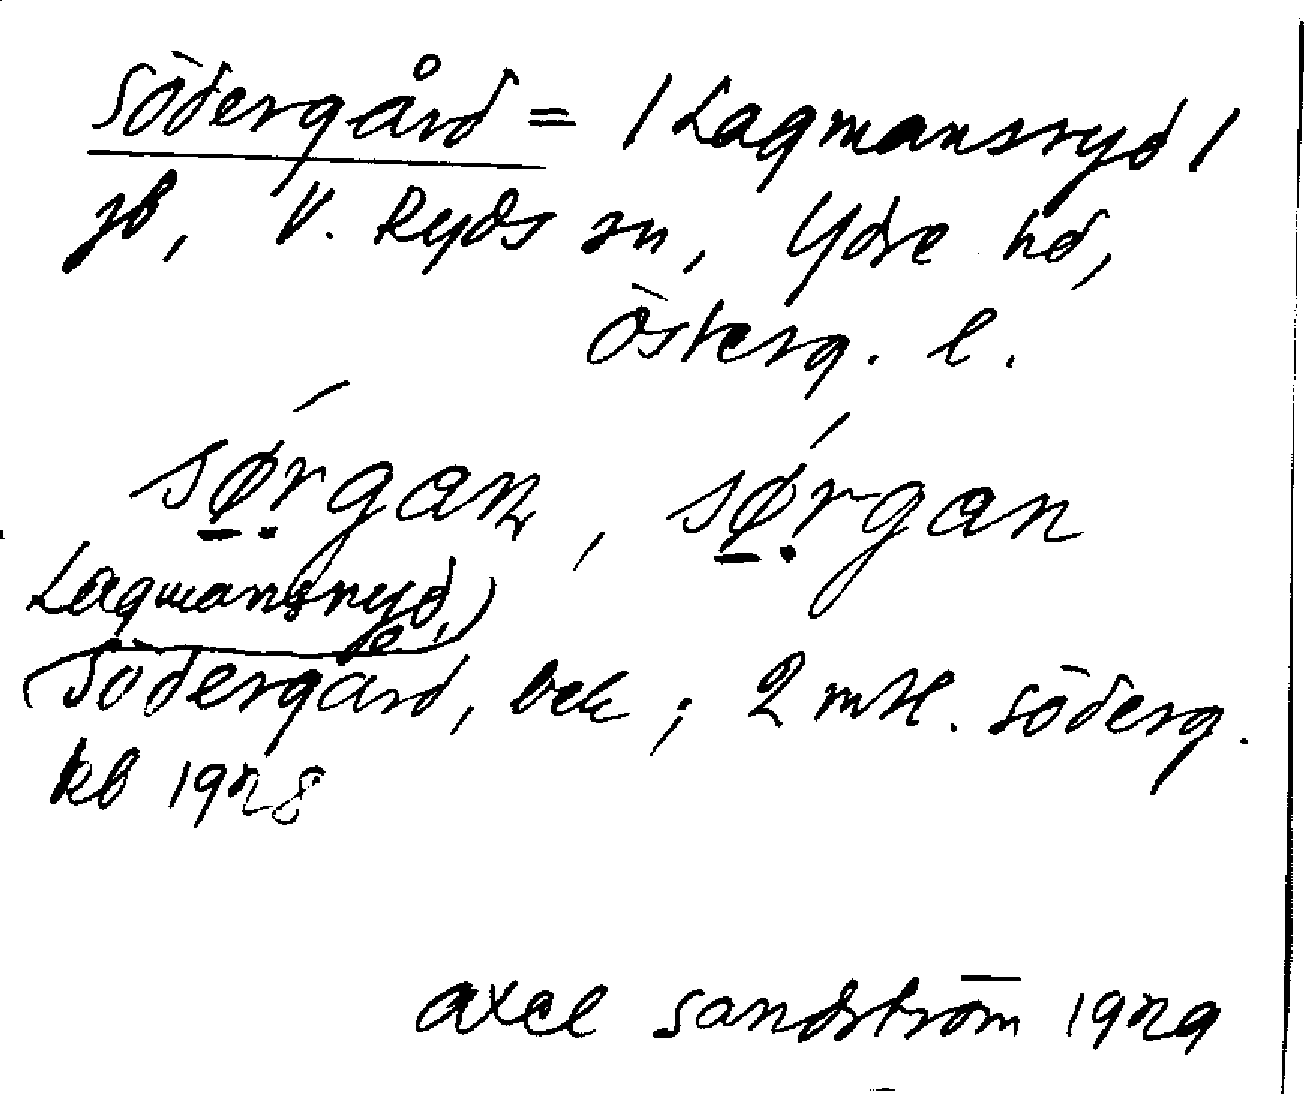 Södergård = / Lagmansryd /
gb, V. Ryds sn, Ydre hd,
Österg. l.
sørgan, sørgan
Lagmansryd,)
(Södergård, bek ; 2 mtl. Söderg.
kb 1928
Axel Sandström 1929